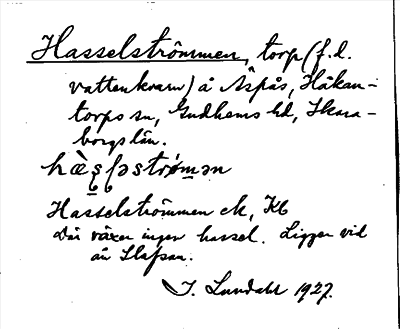 Hasselströmmen, torp (f.d.
vattenkvarn) å Aspås, Håkan-
torps sn, Gudhems hd, Skara-
borgs län.
Hasselströmmen ek, Kb
Där växer ingen hassel. Ligger vid
ån Slafsan.
I. Lundahl 1927.